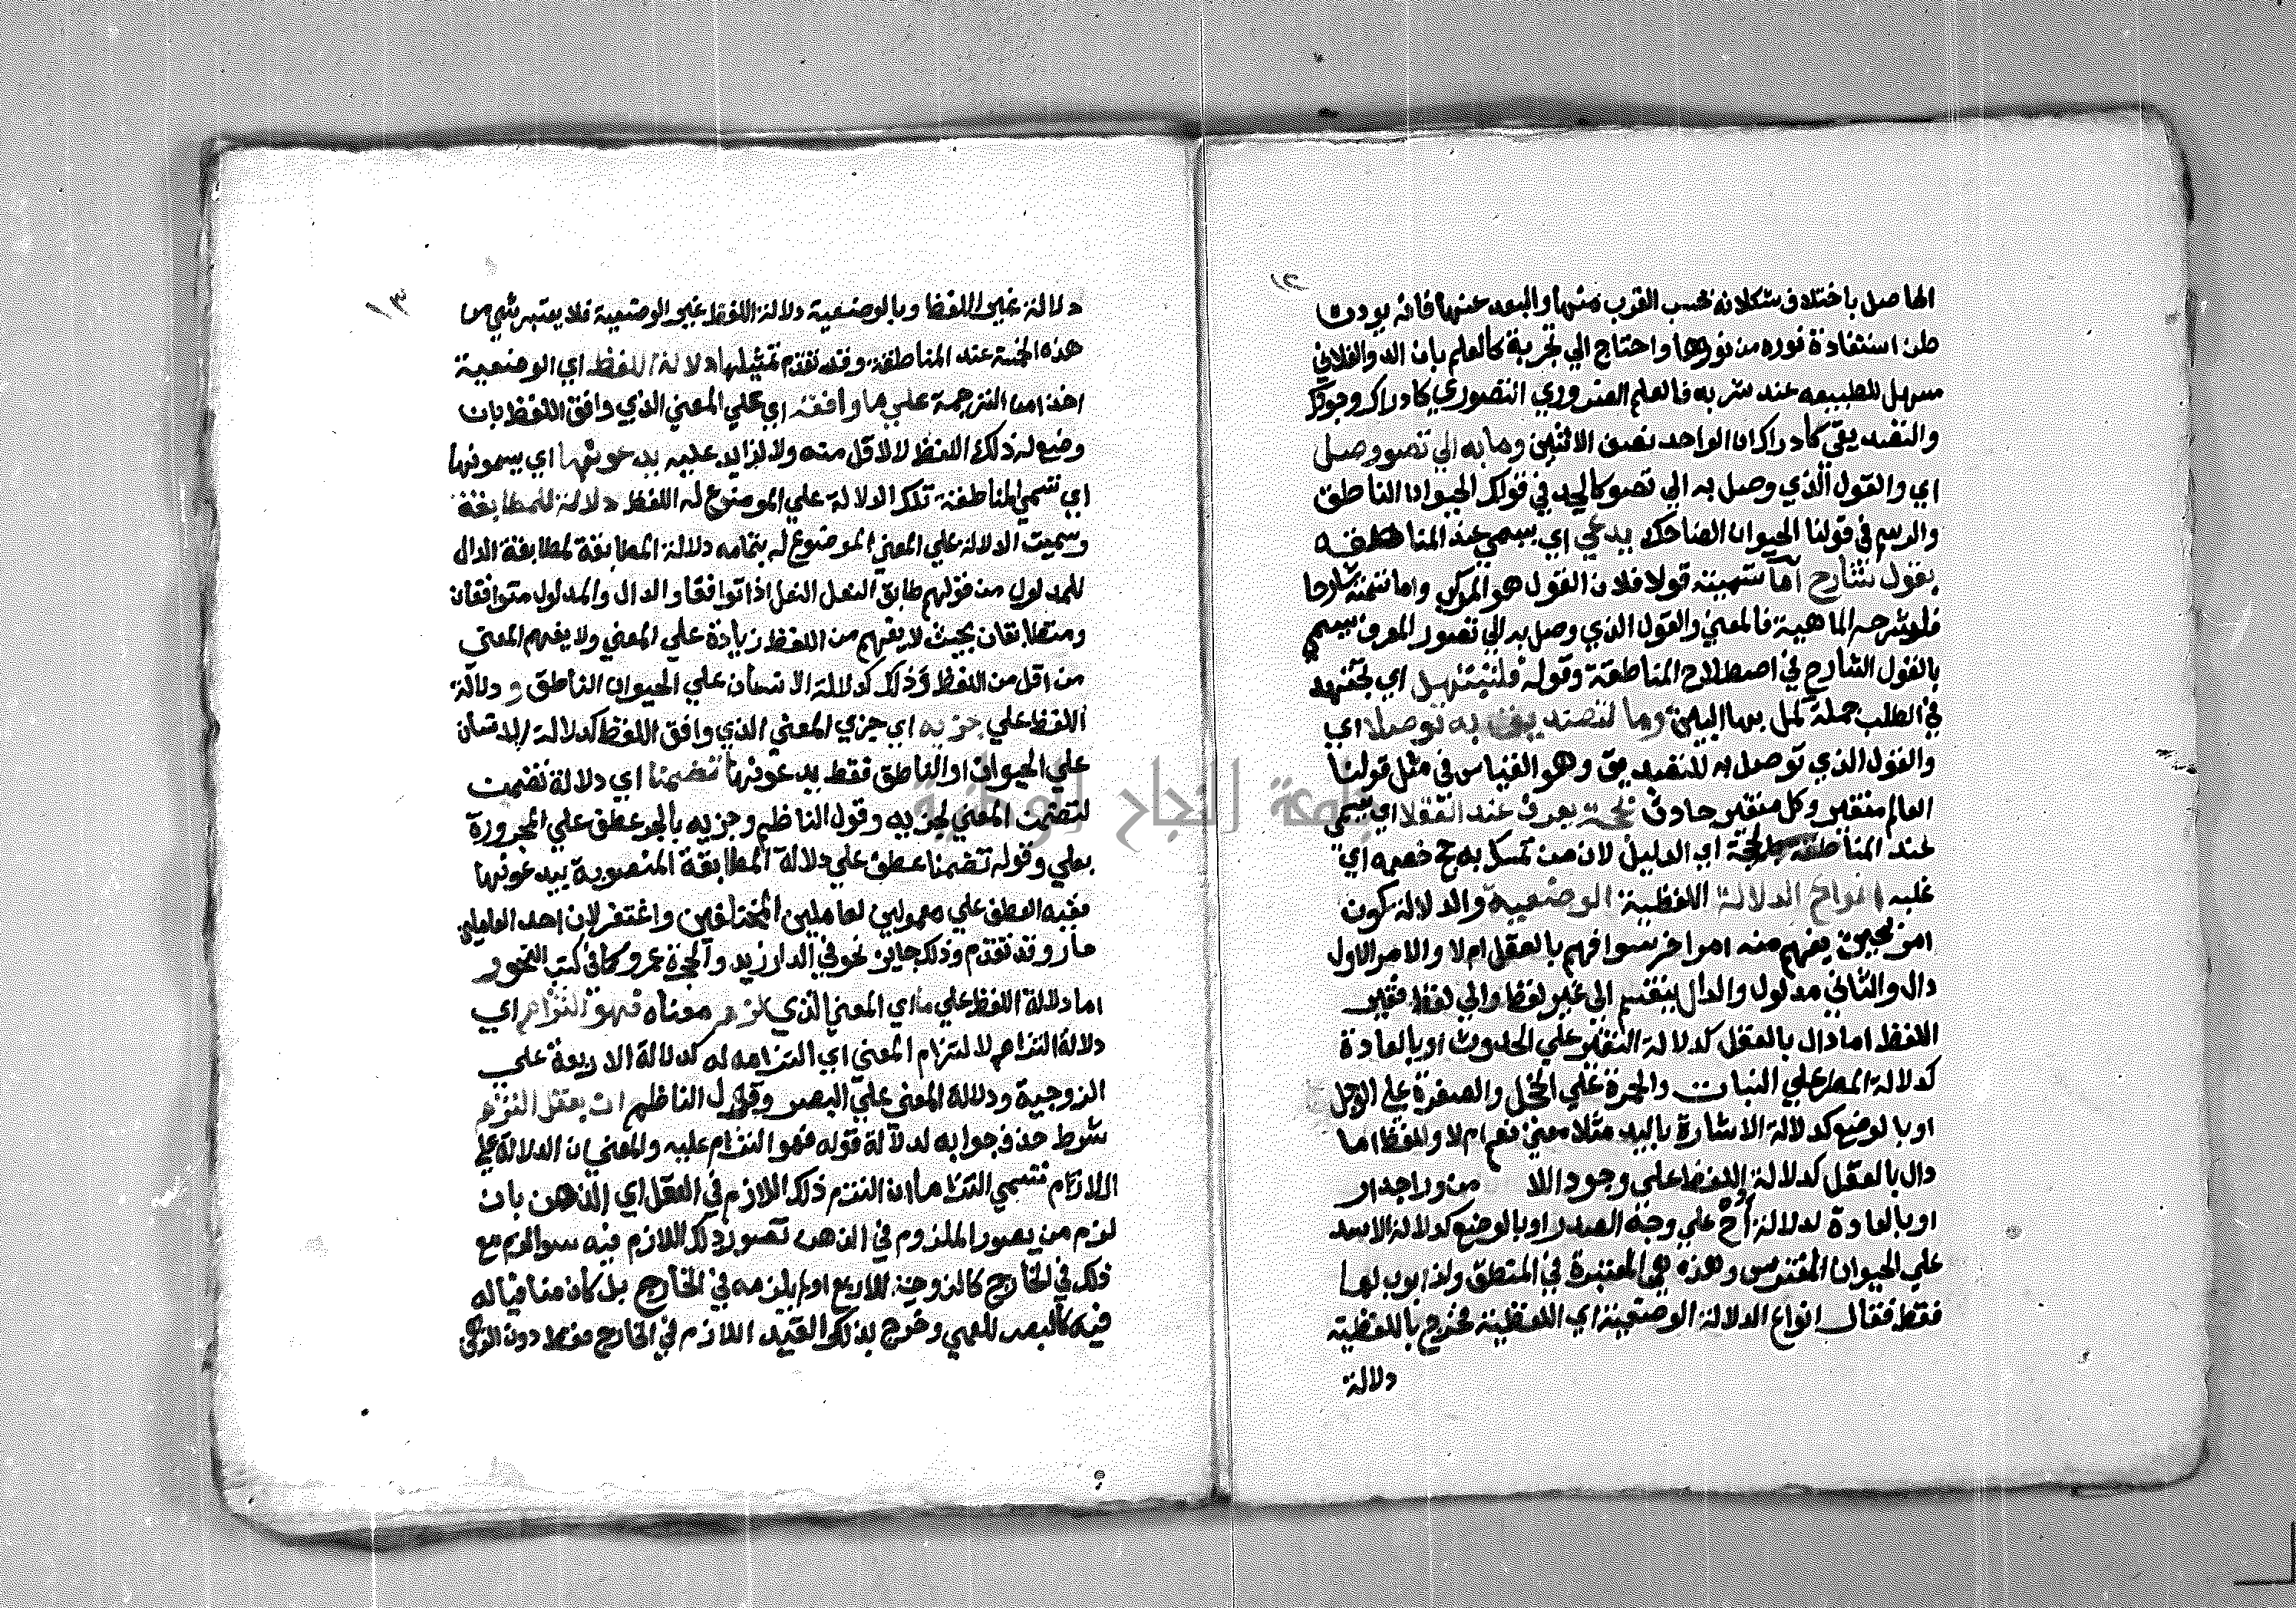 ١٢
الحاصل باختلاف شكلاته بحسب القرب منها والبعد عنها فانه يورث
ظن استفادة نوره من نورها واحتاج الي تجربة كالعلم بان الدوا الفلاني
مسهل للطبيعه عند شربه فالعلم الضروري التصوري كادراك وجودك
والتصديقي كادراك ان الواحد نصف الاثنين وما به الي تصور وصل
اي والقول الذي وصل به الي تصور كالحد في قولك الحيوان الناطق
والرسم في قولنا الحيوان الضاحك يدعي اي يسمي عند المناطقه
بقول شارح اما تسميته قولا فلان القول هو المركب واما تسميته شارحا
فلشرحه الماهية فالمعني والقول الذي وصل به الي تصور المعرف يسمي
بالقول الشارح في اصطلاح المناطقة وقوله فلتبتهل اي تجتهد
في الطلب جملة كمل بها البيت وما لتصديق به توصلا اي
والقول الذي توصل به للتصديق وهو القياس في مثل قولنا
العالم متغير وكل متغير حادث بحجة يعرف عند العقلا اي يسمي
عند المناطقة بالحجة اي الدليل لان من تمسك به حج خصمه اي
غلبه انواع الدلالة اللفظية الوضعية والدلالة كون
امر بحيث يفهم منه امر اخر سوا فهم بالعقل ام لا والامر الاول
دال والثاني مدلول والدال ينقسم الي غير لفظ والي لفظ فغير
اللفظ اما دال بالعقل كدلالة التغير علي الحدوث او بالعادة
كدلالة المطر علي النبات والحمرة علي الخجل والصفرة علي الوجل
او بالوضع كدلالة الاشارة باليد مثلا معني نعم ام لا واللفظ اما
دال بالعقل كدلالة اللفظ علي وجود اللا من ورا جدار
او بالعادة كدلالة أح علي وجع الصدر او بالوضع كدلالة الاسد
علي الحيوان المفترس وهذه هي المعتبرة في المنطق ولذا بوب لها
فقط فقال انواع الدلالة الوضعية اي اللفظية فخرج باللفظية
دلالة
١٣
دلالة غير اللفظ وبالوضعية دلالة اللفظ غير الوضعية فلا يعتبر شي من
هذه الخمسة عند المناطقة وقد تقدم تمثيلها دلالة اللفظ اي الوضعية
اخذا من الترجمة علي ما وافقه اي علي المعني الذي وافق اللفظ بان
وضع له ذلك اللفظ لا لاقل منه ولا لزايد عليه يدعونها اي يسمونها
اي تسمي المناطقة تلك الدلالة علي الموضوع له اللفظ دلالة المطابقة
وسميت الدلالة علي المعني الموضوع له بتمامه دلالة المطابقة لمطابقة الدال
للمدلول من قولهم طابق النعل النعل اذا توافقا والدال والمدلول متوافقان
ومتطابقان بحيث لا يفهم من اللفظ زيادة علي المعني ولا يفهم المعني
من اقل من اللفظ وذلك كدلالة الانسان علي الحيوان الناطق ودلالة
اللفظ علي جزيه اي جزي المعني الذي وافق اللفظ كدلالة الانسان
علي الحيوان او الناطق فقط يدعونها تضمنا اي دلالة تضمنت
لتضمن المعني لجزيه وقول الناظم وجزيه بالجر عطف علي المجرورة
بعلي وقوله تضمنا عطف علي دلالة المطابقة المنصوبة بيدعونها
ففيه العطف علي معمولين لعاملين المختلفين واغتفر لان احد العاملين
جار وقد تقدم وذلك جايز نحو في الدار زيد والحجرة عمرو كما في كتب النحو
اما دلالة اللفظ علي ما اي المعني الذي لزم معناه فهو التزام اي
دلالة التزام لالتزام المعني اي التزامه له كدلالة الاربعة علي
الزوجية ودلالة المعني علي البصر وقول الناظم ان بعقل التزم
شرط حذف جوابه لدلالة قوله فهو التزام عليه والمعني ان الدلالة علي
اللازم تسمي التزاما ان التزم ذلك اللازم في العقل اي الذهن بان
لزم من يصور الملزوم في الذهن تصور ذلك اللازم فيه سوا لزم مع
ذلك في الخارج كالزوجية للاربع او لم يلزمه في الخارج بل كان منافيا له
فيه كالبصر للعمي وخرج بذلك القيد اللازم في الخارج فقط دون الذهن
جامعة النجاح الوطنية